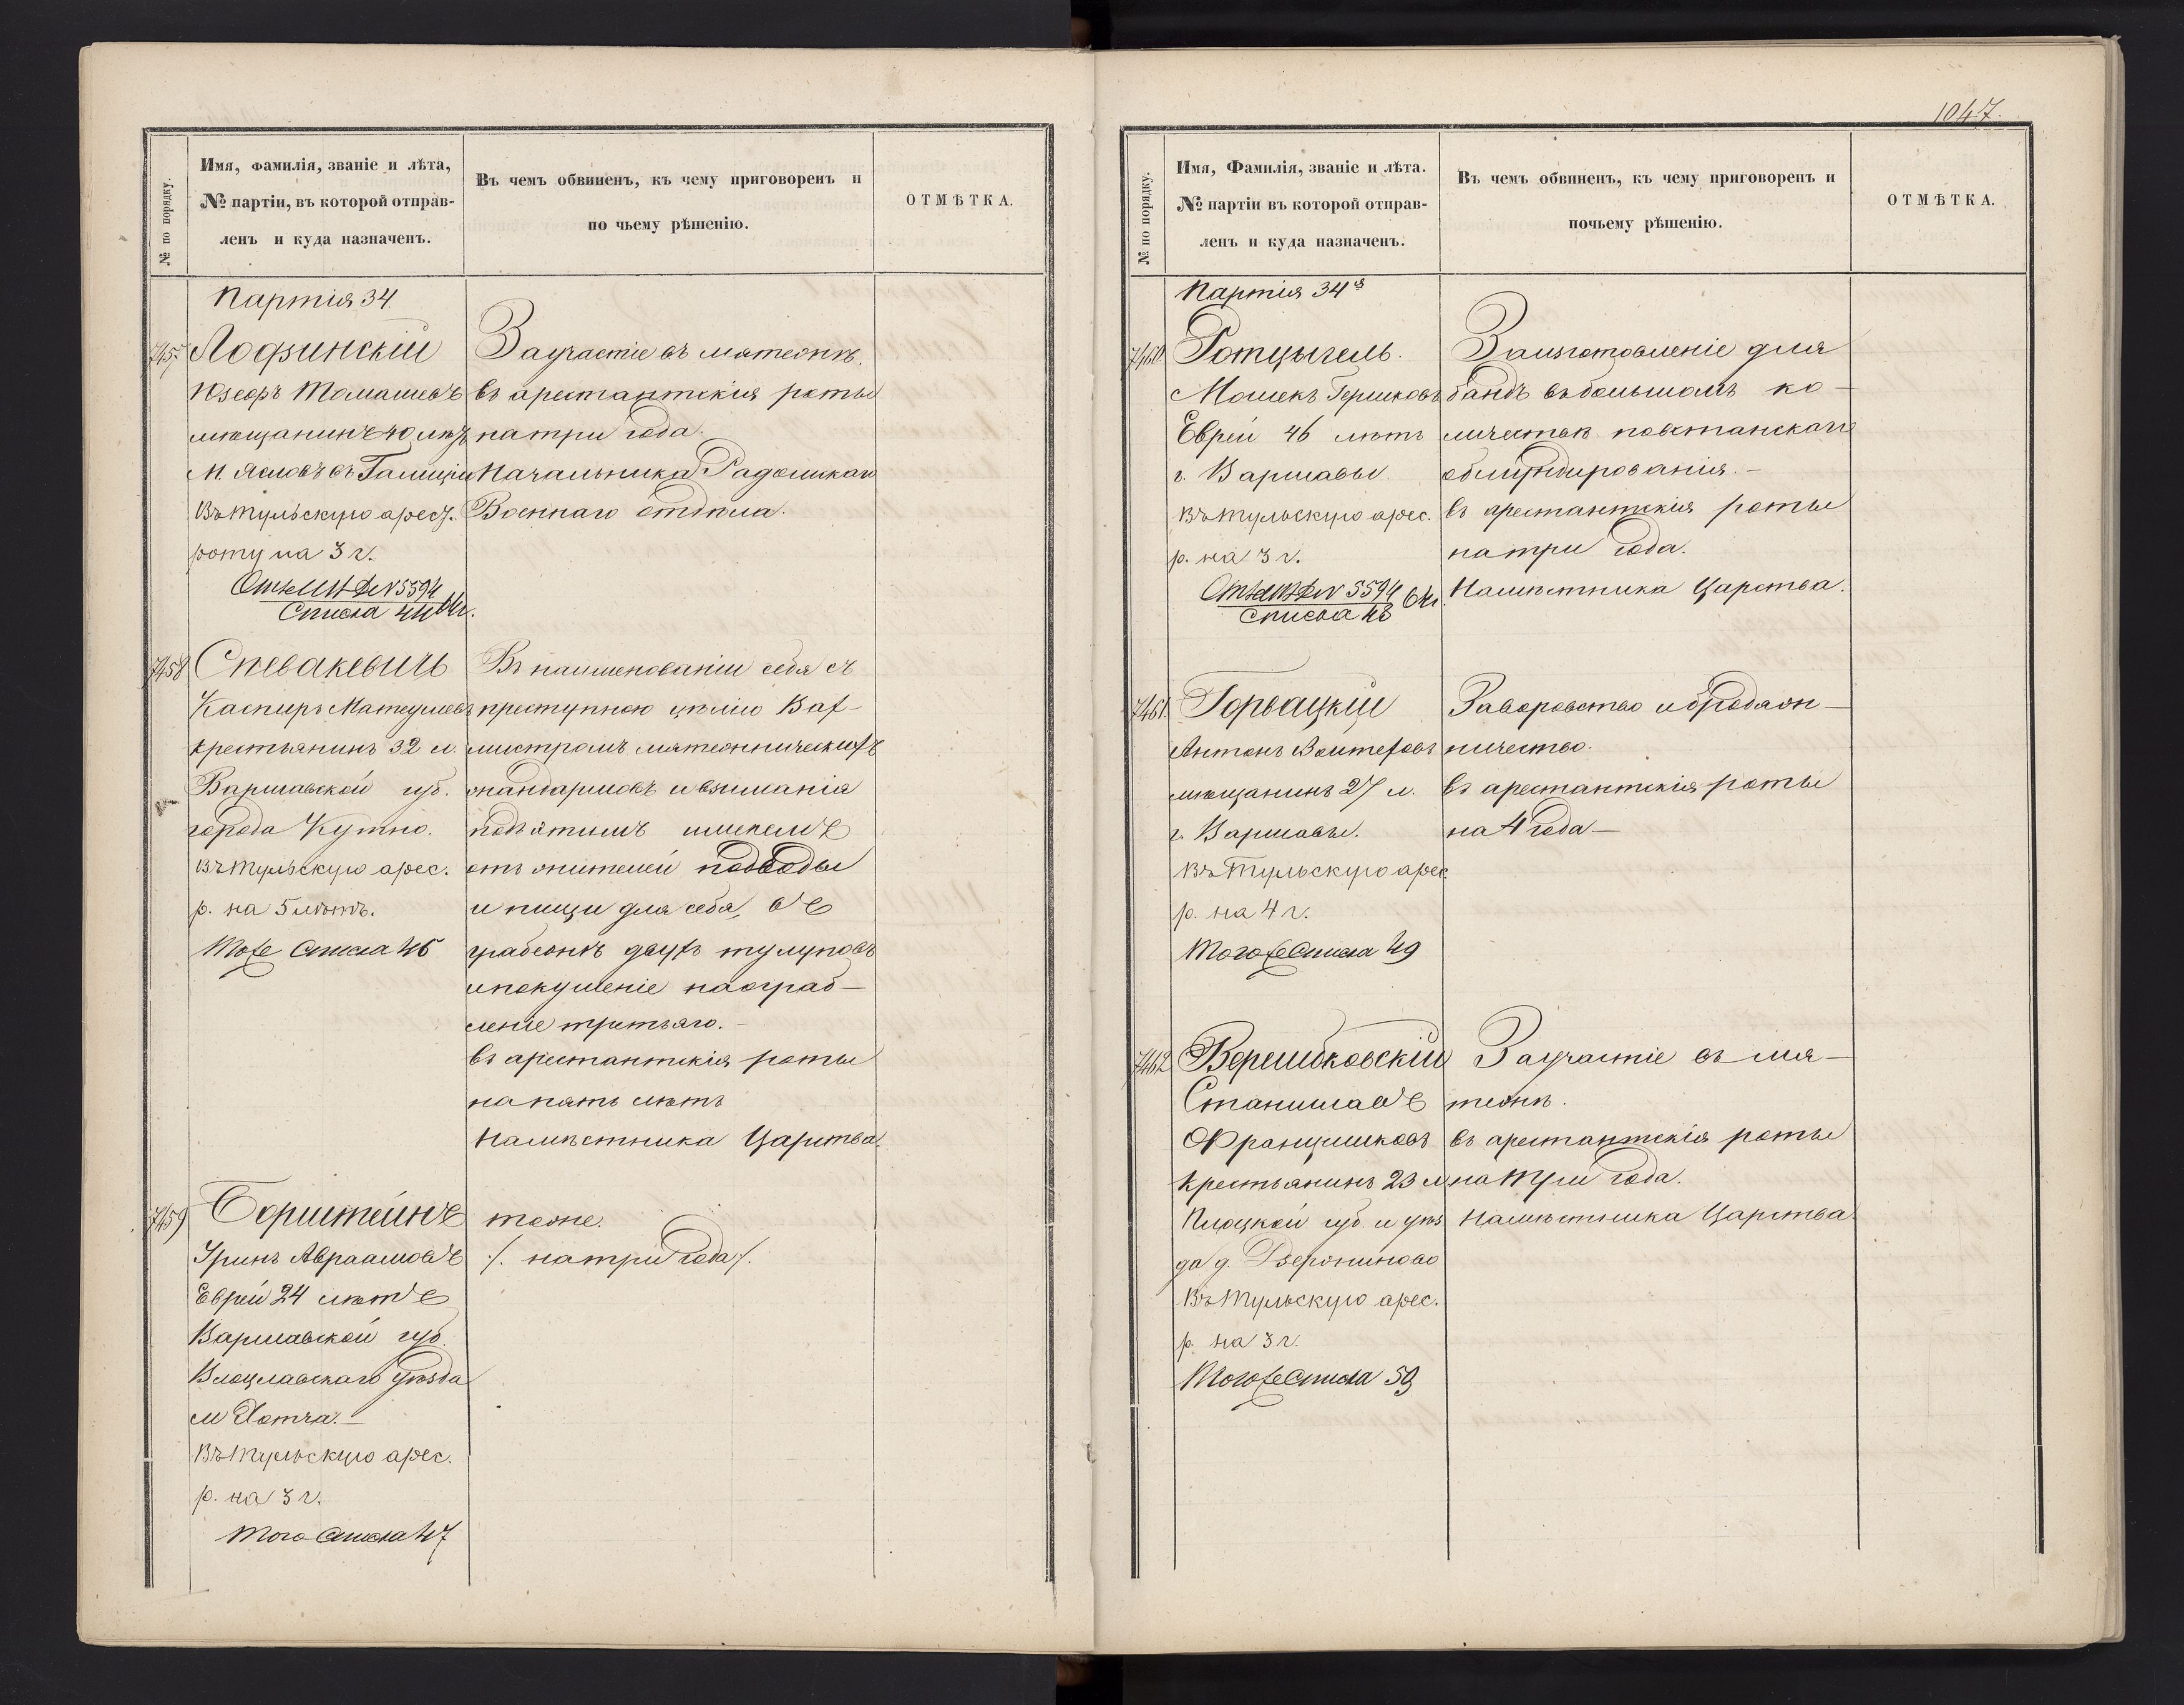 № по порядку.
Имя, фамилія, званіе и лѣта,
№ партіи, въ которой отправ-
ленъ и куда назначенъ.
Въ чемъ обвиненъ, къ чему приговоренъ и
по чьему рѣшенію.
ОТМѢТКА.
Партія 34.
7457
Лодзинскій
Юзефъ Томашевъ
мѣщанинъ 40 лѣтъ
М. Ясловъ въ Галиціи
Въ Тульскую арест.
роту на 3 г.
№ 5594
Списка 44 64 г.
За участіе въ мятежѣ.
въ арестантскія роты
на три года.
Начальника Радомскаго
Военнаго отдѣла.
7458
Спевакевичъ
Каспиръ Матеушевъ
крестьянинъ 32 л.
Варшавской губ.
города Кутно.
Въ Тульскую арес.
р. на 5 лѣтъ.
Тоже Списка 46
Въ наименованіи себя съ
преступною цѣлію Вах-
мистромъ мятежническихъ
жандармовъ и взиманія
подъ этимъ
отъ жителей подводы
и пищи для себя, въ
грабежѣ двухъ тулуповъ
и покушеніе на ограб-
леніе третьяго.-
въ арестантскія роты
на пять лѣтъ
Намѣстника Царства.
7459
Борштейнъ
Уринъ Авраамовъ
Еврей 24 лѣтъ
Варшавской губ.
Влоцлавскаго уѣзда
м
Въ Тульскую арес.
р. на 3 г.
Того Списка 47
тоже.
./. на три года ./.
1047.
№ по порядку.
Имя, Фамилія, званіе и лѣта.
№ партіи въ которой отправ-
ленъ и куда назначенъ.
Въ чемъ обвиненъ, къ чему приговоренъ и
почьему рѣшенію.
ОТМѢТКА.
Партія 34я
7460
Ротцыгель.
Мошекъ Гершковъ
Еврей 46 лѣтъ
г. Варшавы.
Въ Тульскую арес.
р. на 3 г.
№ 5594 64 г.
Списка 48
За изготовленіе для
бандъ въ большомъ ко-
личествѣ повстанскаго
обмундированія.-
въ арестантскія роты
на три года.
Намѣстника Царства.
7461
Горвацкій
Антонъ Войтеховъ
мѣщанинъ 27 л.
г. Варшавы.
Въ Тульскую арес.
р. на 4 г.
Того же Списка 49
За воровство и бродяж-
ничество.
въ арестантскія роты
на 4 года-
7462
Верешбковскій
Станиславъ
Францишковъ
крестьянинъ 23 л
Плоцкой губ. и уѣз
да д.
Въ Тульскую арес.
р. на 3 г.
Того же Списка 59
За участіе въ мя-
тежѣ.
въ арестантскія роты
на три года.
Намѣстника Царства